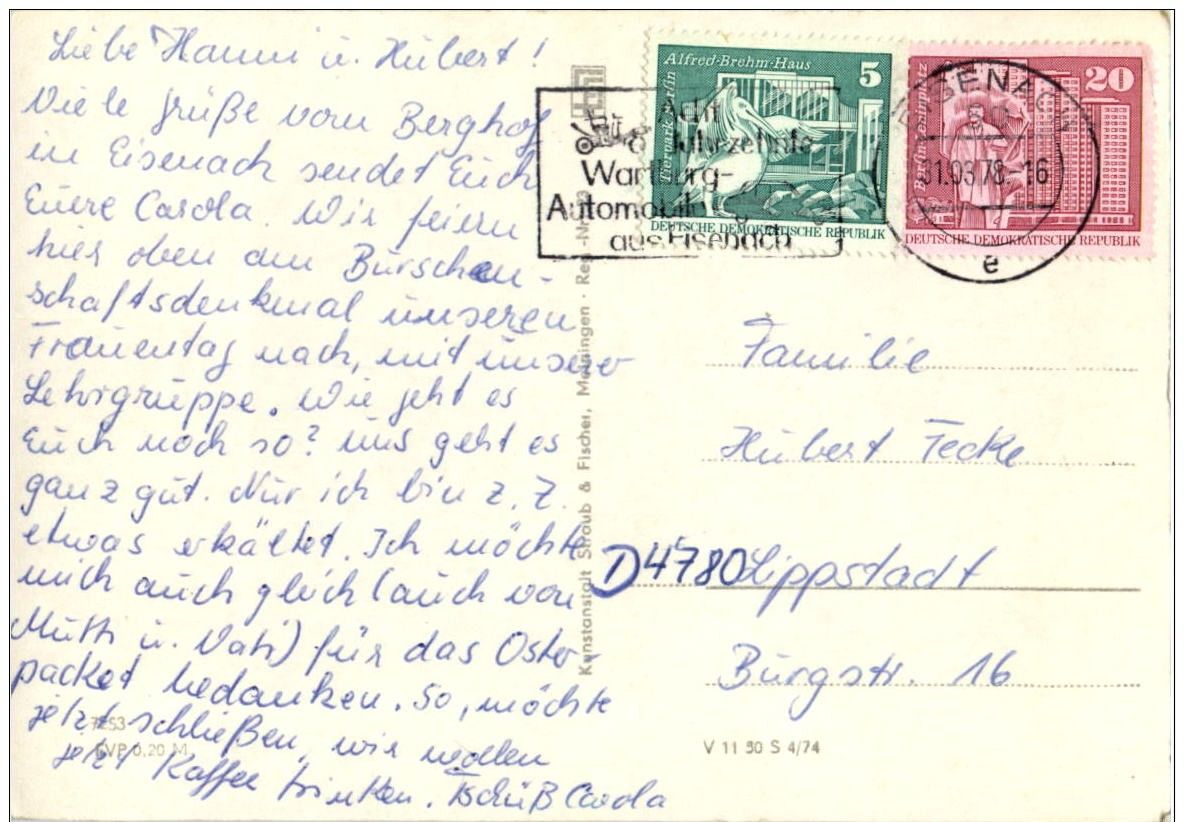 Liebe Hanni u. Hubert!
Viele Grüße vom Berghof
in Eisenach sendet Euch
Euere Carola. Wir feiern
hier oben am Burschen-
schaftsdenkmal unseren
Frauentag nach, mit unserer
Lehrgruppe. Wie geht es
Euch noch so? Uns geht es
ganz gut. Nur ich bin z. Z.
etwas erkältet. Ich möchte
mich auch gleich (auch von
Mutti u. Vati) für das Oster-
packet bedanken. So, möchte
jetzt schließen, wir wollen
jetzt Kaffee trinken. Tschüß Carola
7253
EVP 0,20 M
Kunstanstalt Straub & Fischer, Meiningen · Reg.-Nr.
Acht
Jahrzehnte
Wartburg-
Automobil
aus Eisenach
Tierpark Berlin
Alfred-Brehm-Haus
5
DEUTSCHE DEMOKRATISCHE REPUBLIK
Berlin, Leninplatz
20
DEUTSCHE DEMOKRATISCHE REPUBLIK
EISENACH
31.03.78.-16
e
Familie
Hubert Tecke
D 4780 Lippstadt
Burgstr. 16
V 11 50 S 4/74